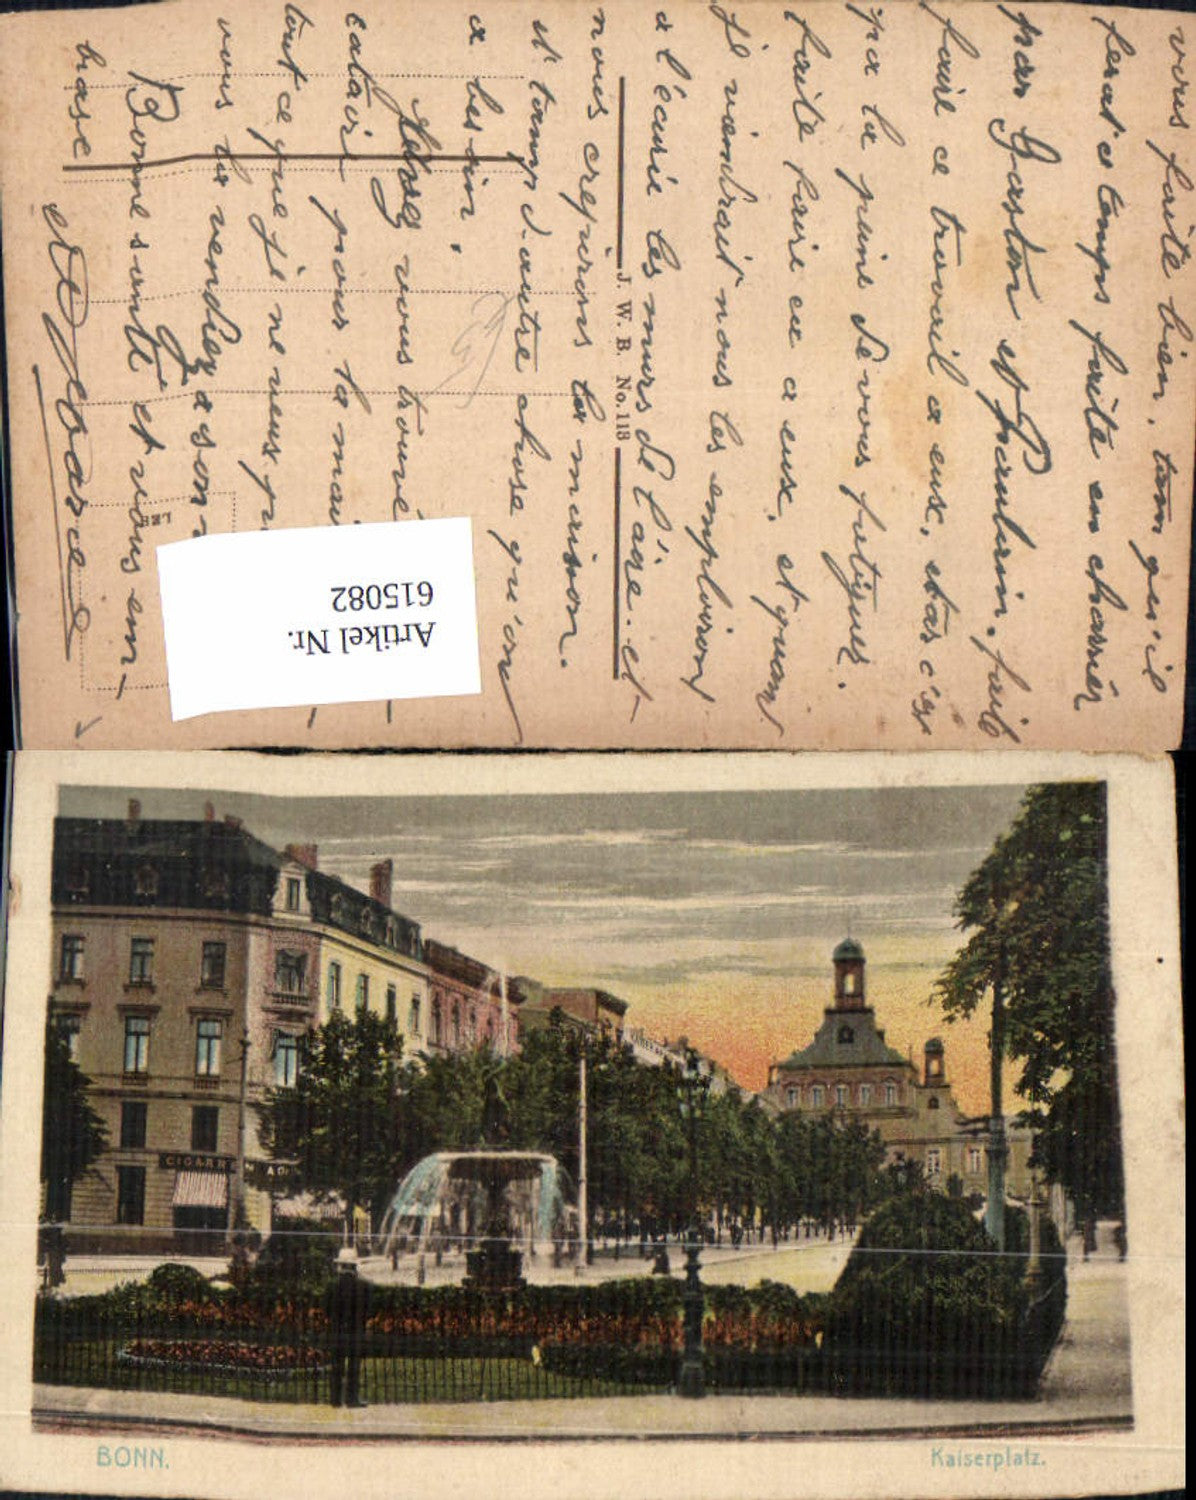 vous faite bien, tan qu'il
ferat ce temps faite en charrier
par Gaston et Paulin. faite
faire ce travail a eux, stas c'est
pa la peine de vous fatiguer.
faite faire ca a eux, et quan
je viendrait nous les emploiron
a l'écurie les murs de l'aire. et
nous crepirons la maison.
et tamp d'autre chose qu'on
a besoin.
vous trouvé
cataire pour la mai
tout ce que je ne veux pa
vous la vendiez a son
Bonne santé et vous em-
brase
J. W. B. No. 118
Artikel Nr.
615082
CIGARR
BONN.
Kaiserplatz.